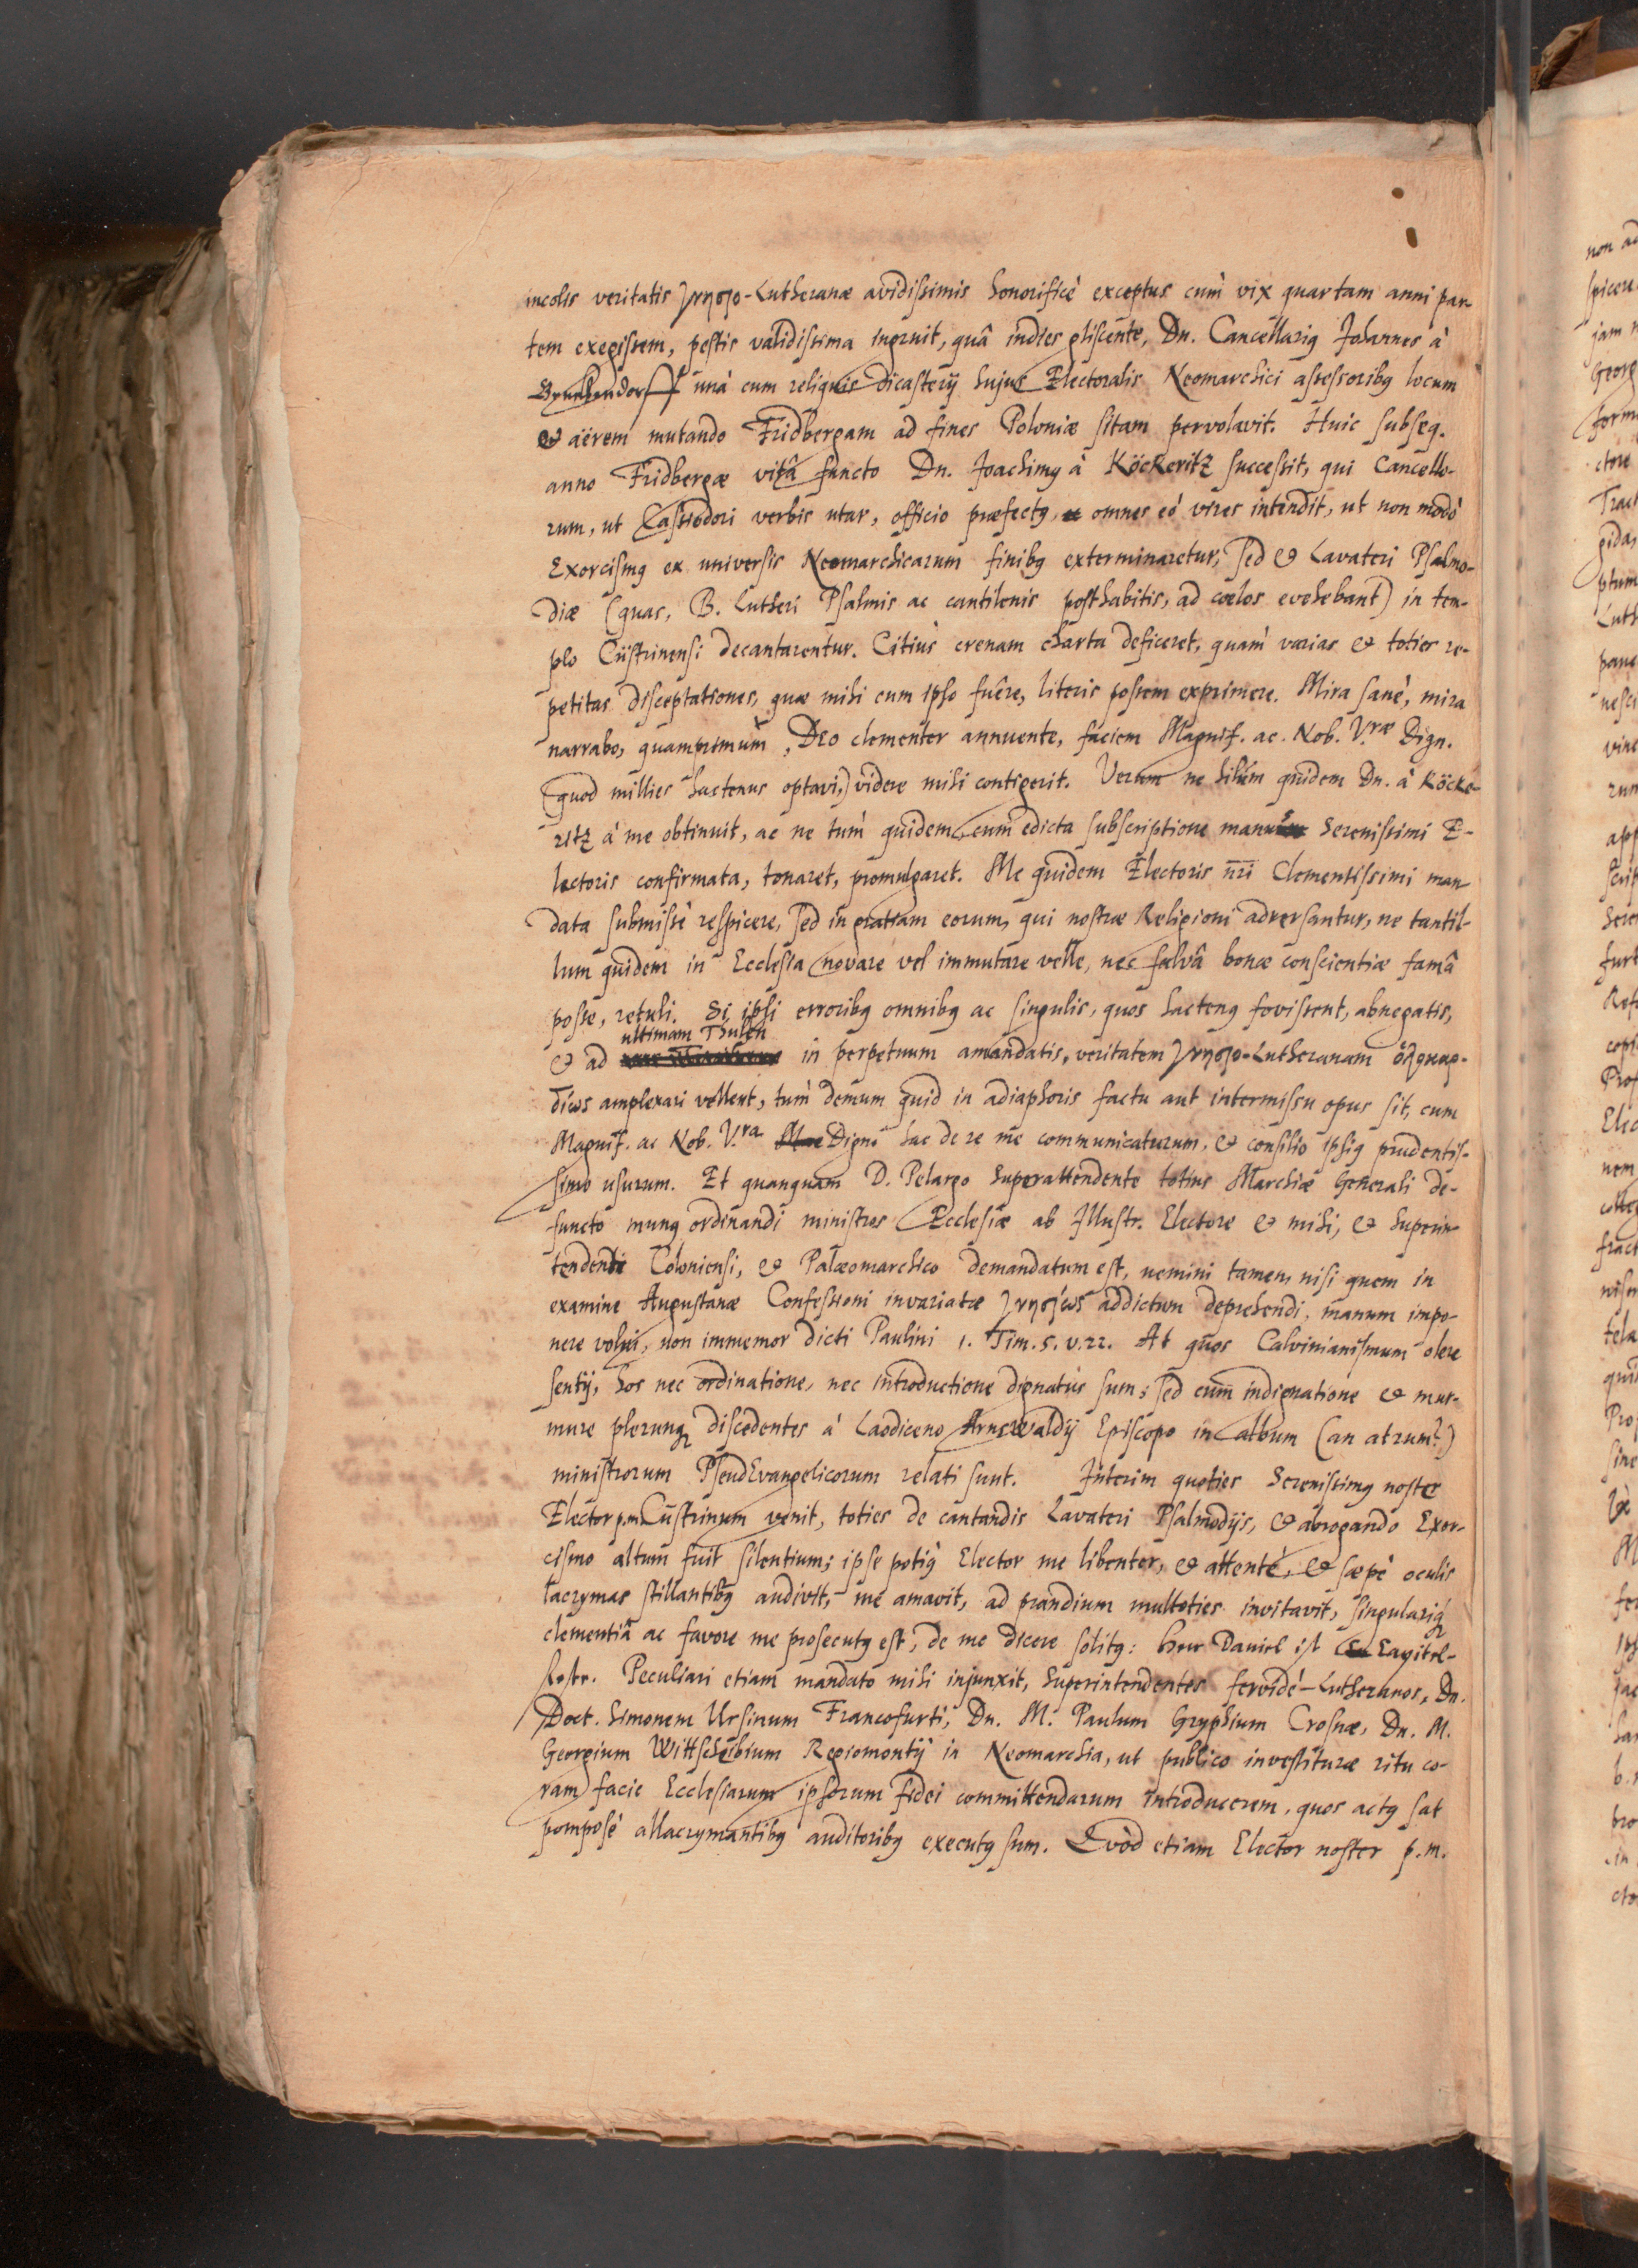 incolis veritatis γνησιο-Lutheranæ avidissimis honorificè exceptus cùm vix quartam anni par-
tem exegissem, pestis validissima ingruit, quâ indies gliscente, Dn. Cancellariꝰ Johannes à
unà cum reliquis dicasterij hujus Electoralis Neomarchici assessoribꝰ locum
& aërem mutando Fridbergam ad fines Poloniæ sitam pervolavit. Huic subseq.
anno Fridbergæ vitâ functo Dn. Joachimꝰ à Köckeritz successit, qui Cancello-
rum, ut Cassiodori verbis utar, officio præfectꝰ, omnes eó vires intendit, ut non modò
Exorcismꝰ ex universis Neomarchicarum finibꝰ exterminaretur, sed & Lavateri Psalmo-
diæ (quas, B. Lutheri Psalmis ac cantilenis posthabitis, ad cœlos evehebant) in tem-
plo Cüstrinensi decantarentur. Citiùs crenam charta deficeret, quàm varias & toties re-
petitas disceptationes, quæ mihi cum ipso fuêre, literis possem exprimere. Mira sanè, mira
narrabo, quamprimùm, DEO clementer annuente, faciem Magnif. ac. Nob. V.ræ Dign.
(quod millies hactenus optavi,) videre mihi contigerit. Verum ne hilum quidem Dn. à Köcke-
ritz à me obtinuit, ac ne tùm quidem, cum edicta subscriptione manu Serenissimi E-
lectoris confirmata, tonaret, promulgaret. Me quidem Electoris nr̄i Clementissimi man-
data submissè respicere, sed in gratiam eorum, qui nostræ Religioni adversantur, ne tantil-
lum quidem in Ecclesia novare vel immutare velle, nec salvâ bonæ conscientiæ famâ
posse, retuli. Si ipsi erroribꝰ omnibꝰ ac singulis, quos hactenꝰ fovissent, abnegatis,
ultimam Thulen
& ad in perpetuum amandatis, veritatem γνησιο-Lutheranam ὁλοκαρ-
δίως amplexari vellent, tùm demum quid in adiaphoris factu aut intermissu opus sit, cum
Magnif. ac Nob. V.ra Dign. hac de re me communicaturum, & consilio ipsiꝰ prudentis-
simo usurum. Et quanquam D. Pelargo Superattendente totius Marchiæ Generali de-
functo munꝰ ordinandi ministros Ecclesiæ ab Illustr. Electore & mihi, & Superin-
tendenti Coloniensi, & Palæomarchico demandatum est, nemini tamen, nisi quem in
examine Augustanæ Confessioni invariatæ γνησίως addictum deprehendi, manum impo-
nere volui, non immemor dicti Paulini 1. Tim. 5. v. 22. At quos Calvinianismum olere
sentij, hos nec ordinatione, nec introductione dignatus sum; sed cum indignatione & mur-
mure plerunqꝫ discedentes à Laodiceno Arnswaldij Episcopo in album (an atrum?)
ministrorum PseudEvangelicorum relati sunt. Interim quoties Serenissimꝰ noster
Elector p.m. Custrinum venit, toties de cantandis Lavateri Psalmodijs, & abrogando Exor-
cismo altum fuit silentium; ipse potiꝰ Elector me libenter, & attentè, & sæpè oculis
lacrymas stillantibꝰ audivit, me amavit, ad prandium multoties invitavit, singulariqꝫ
clementiâ ac favore me prosecutꝰ est, de me dicere solitꝰ: Herr Daniel ist
Peculiari etiam mandato mihi injunxit, Superintendentes fervidè-Lutheranos, Dn.
Doct. Simonem Ursinum Francofurti, Dn. M. Paulum Gryphium Crosnæ, Dn. M.
Georgium Regiomontij in Neomarchia, ut publico investituræ ritu co-
ram facie Ecclesiarum ipsorum fidei committendarum introducerem, quos actꝰ sat
pomposè allacrymantibꝰ auditoribꝰ executꝰ sum. Qvòd etiam Elector noster p.m.